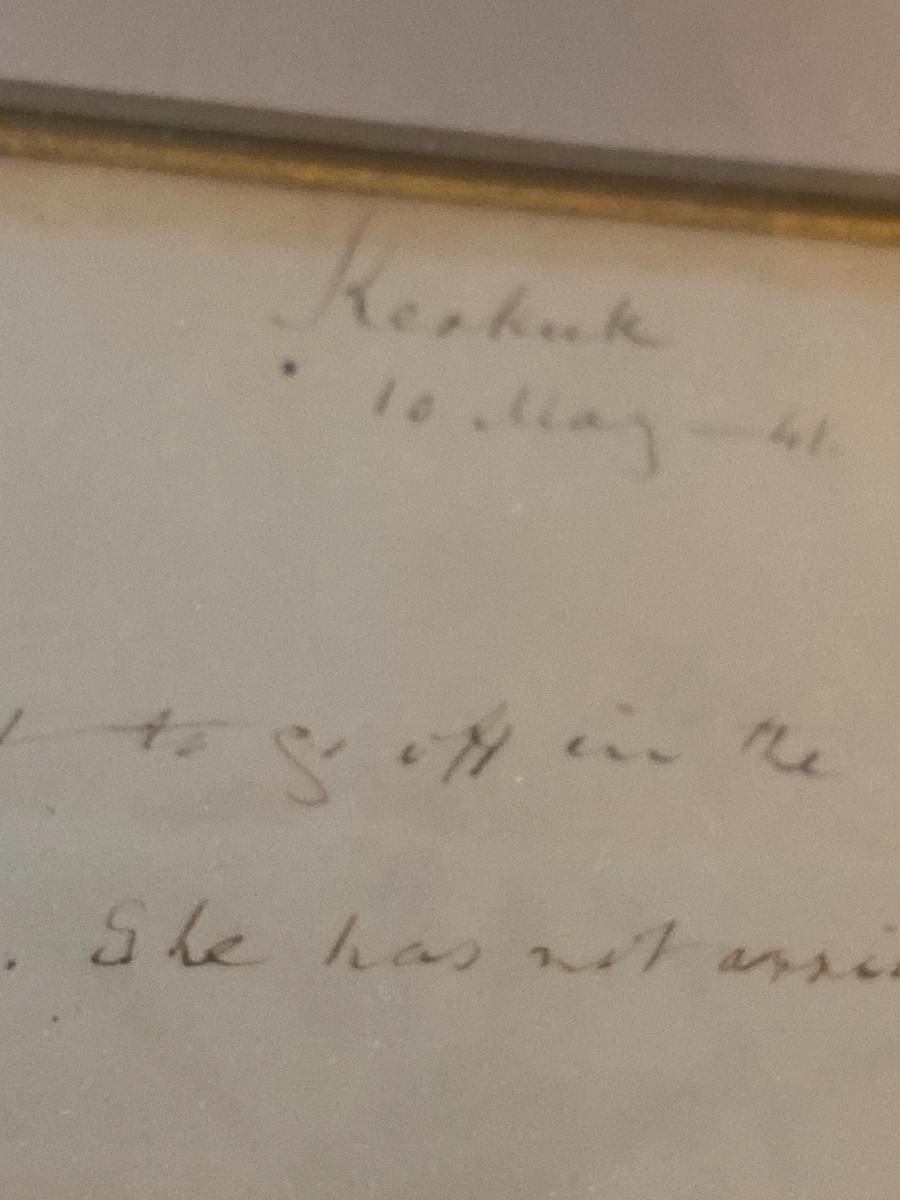 Keokuk
10 May — 61.
to go off in the
. She has not